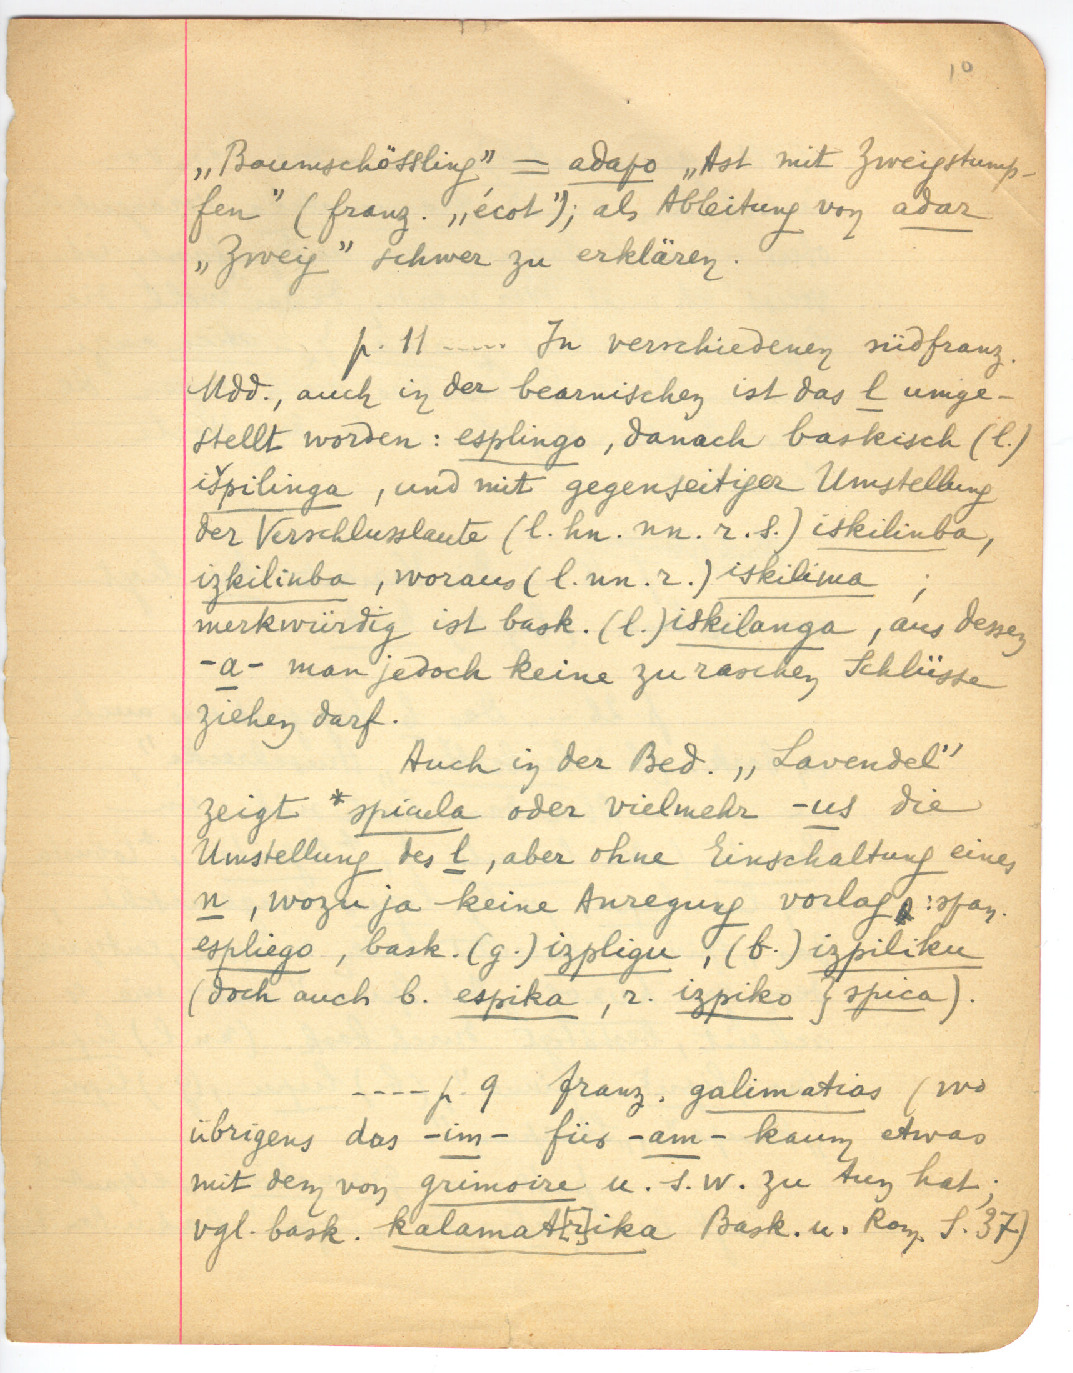 10
„Baumschössling” = adapo „Ast mit Zweigstump-
fen” (franz. „écot”); als Ableitung von adar
„Zweig” schwer zu erklären.
p. 11 ..... In verschiedenen südfranz.
Mdd., auch in der bearnischen ist das l umge-
stellt worden: esplingo, danach baskisch (l.)
išpilinga, und mit gegenseitiger Umstellung
der Verschlusslaute (l. hn. nn. r. s.) iskilinba,
izkilinba, woraus (l. nn. r.) iskilima ;
merkwürdig ist bask. (l.) iskilanga, aus dessen
-a- man jedoch keine zu raschen Schlüsse
ziehen darf.
Auch in der Bed. „Lavendel”
zeigt *spicula oder vielmehr -us die
Umstellung des l, aber ohne Einschaltung eines
n, wozu ja keine Anregung vorlag : span.
espliego, bask. (g.) izpligu, (b.) izpiliku
(doch auch b. espika, r. izpiko } spica).
---- p. 9 franz. galimatias (wo
übrigens das -im- für -am- kaum etwas
mit dem von grimoire u. s. w. zu tun hat;
vgl. bask. kalamat[r]ika Bask. u. Rom. S. 37)